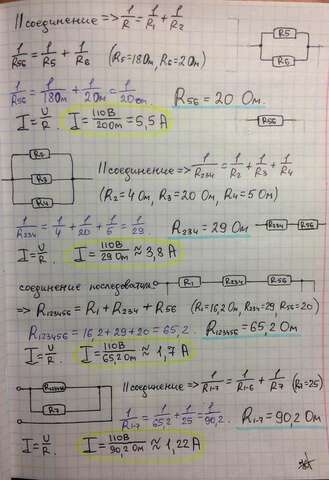 ||соединение => 1/R = 1/R1 + 1/R2
R5
R6
1/R56 = 1/R5 + 1/R6 (R5=18Ом, R6=2Ом)
1/R56 = 1/18Ом + 1/2Ом = 1/20Ом
R56 = 20 Ом.
R56
I = U/R. I = 110В/20Ом = 5,5 А
R2
R3
R4
||соединение => 1/R234 = 1/R2 + 1/R3 + 1/R4
(R2=4Ом, R3=20Ом, R4=5Ом)
1/R234 = 1/4 + 1/20 + 1/5 = 1/29.
R234 = 29 Ом
R234
R56
I = U/R. I = 110В/29Ом ≈ 3,8 А
соединение последоват.
R1
R234
R56
=> R123456 = R1 + R234 + R56 (R1=16,2Ом, R234=29, R56=20)
R123456 = 16,2 + 29 + 20 = 65,2. R123456 = 65,2 Ом
I = U/R. I = 110В/65,2Ом ≈ 1,7 А
R123456
R7
||соединение => 1/R1-7 = 1/R1-6 + 1/R7 (R7=25)
1/R1-7 = 1/65,2 + 1/25 = 1/90,2. R1-7 = 90,2 Ом
I = U/R. I = 110В/90,2Ом ≈ 1,22А